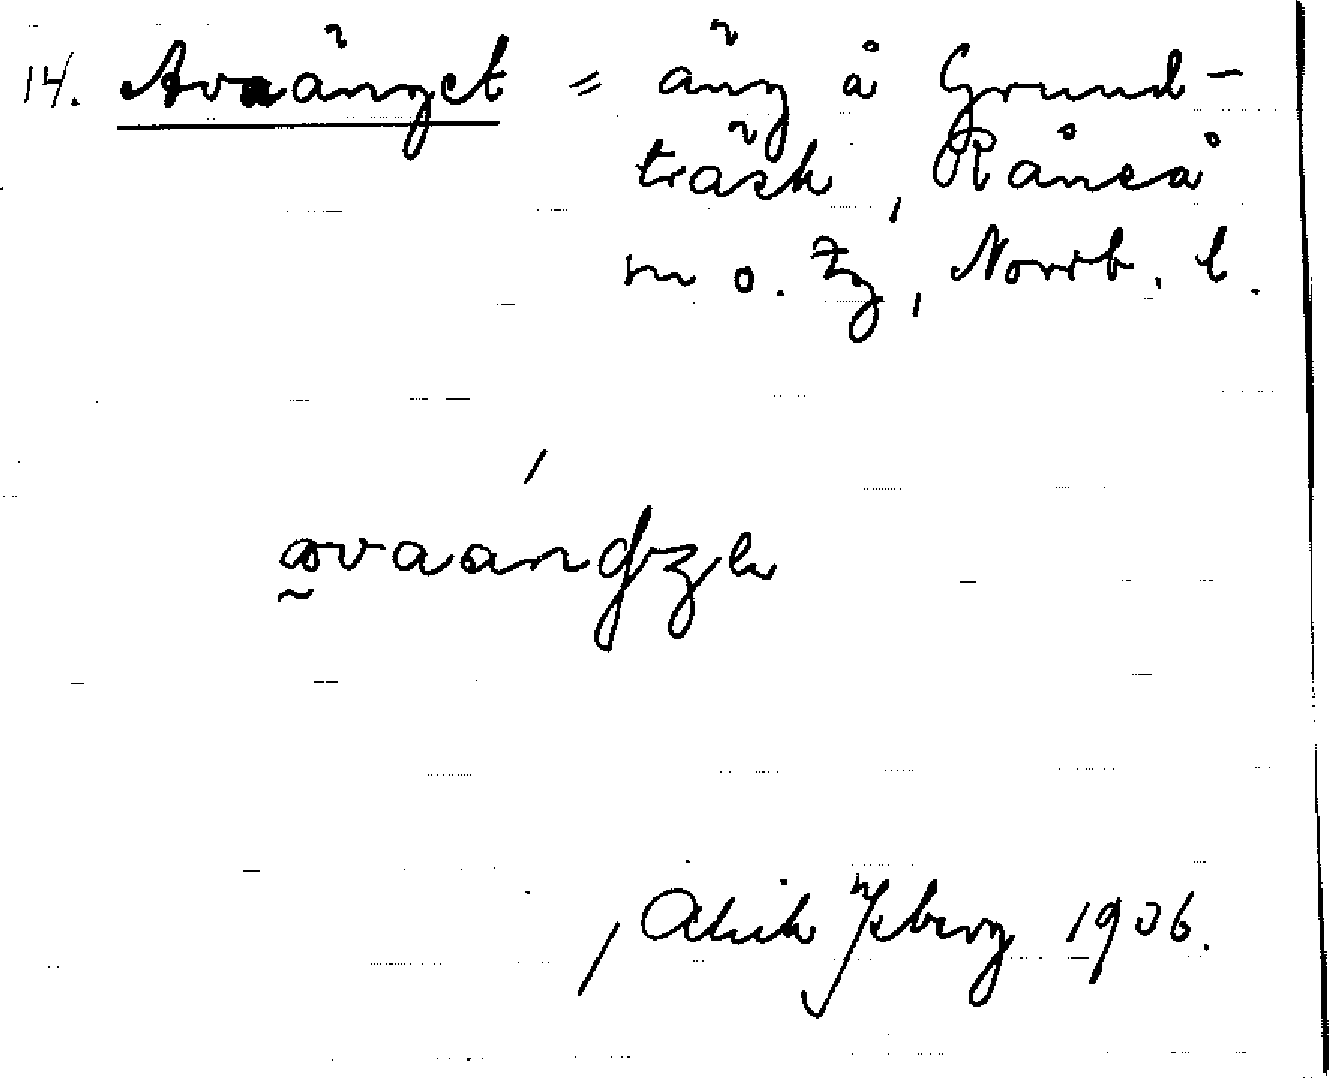 14. Avaänget = äng å Grund-
träsk, Råneå
m o. tg, Norrb. l.
Alrik Ysberg 1906.